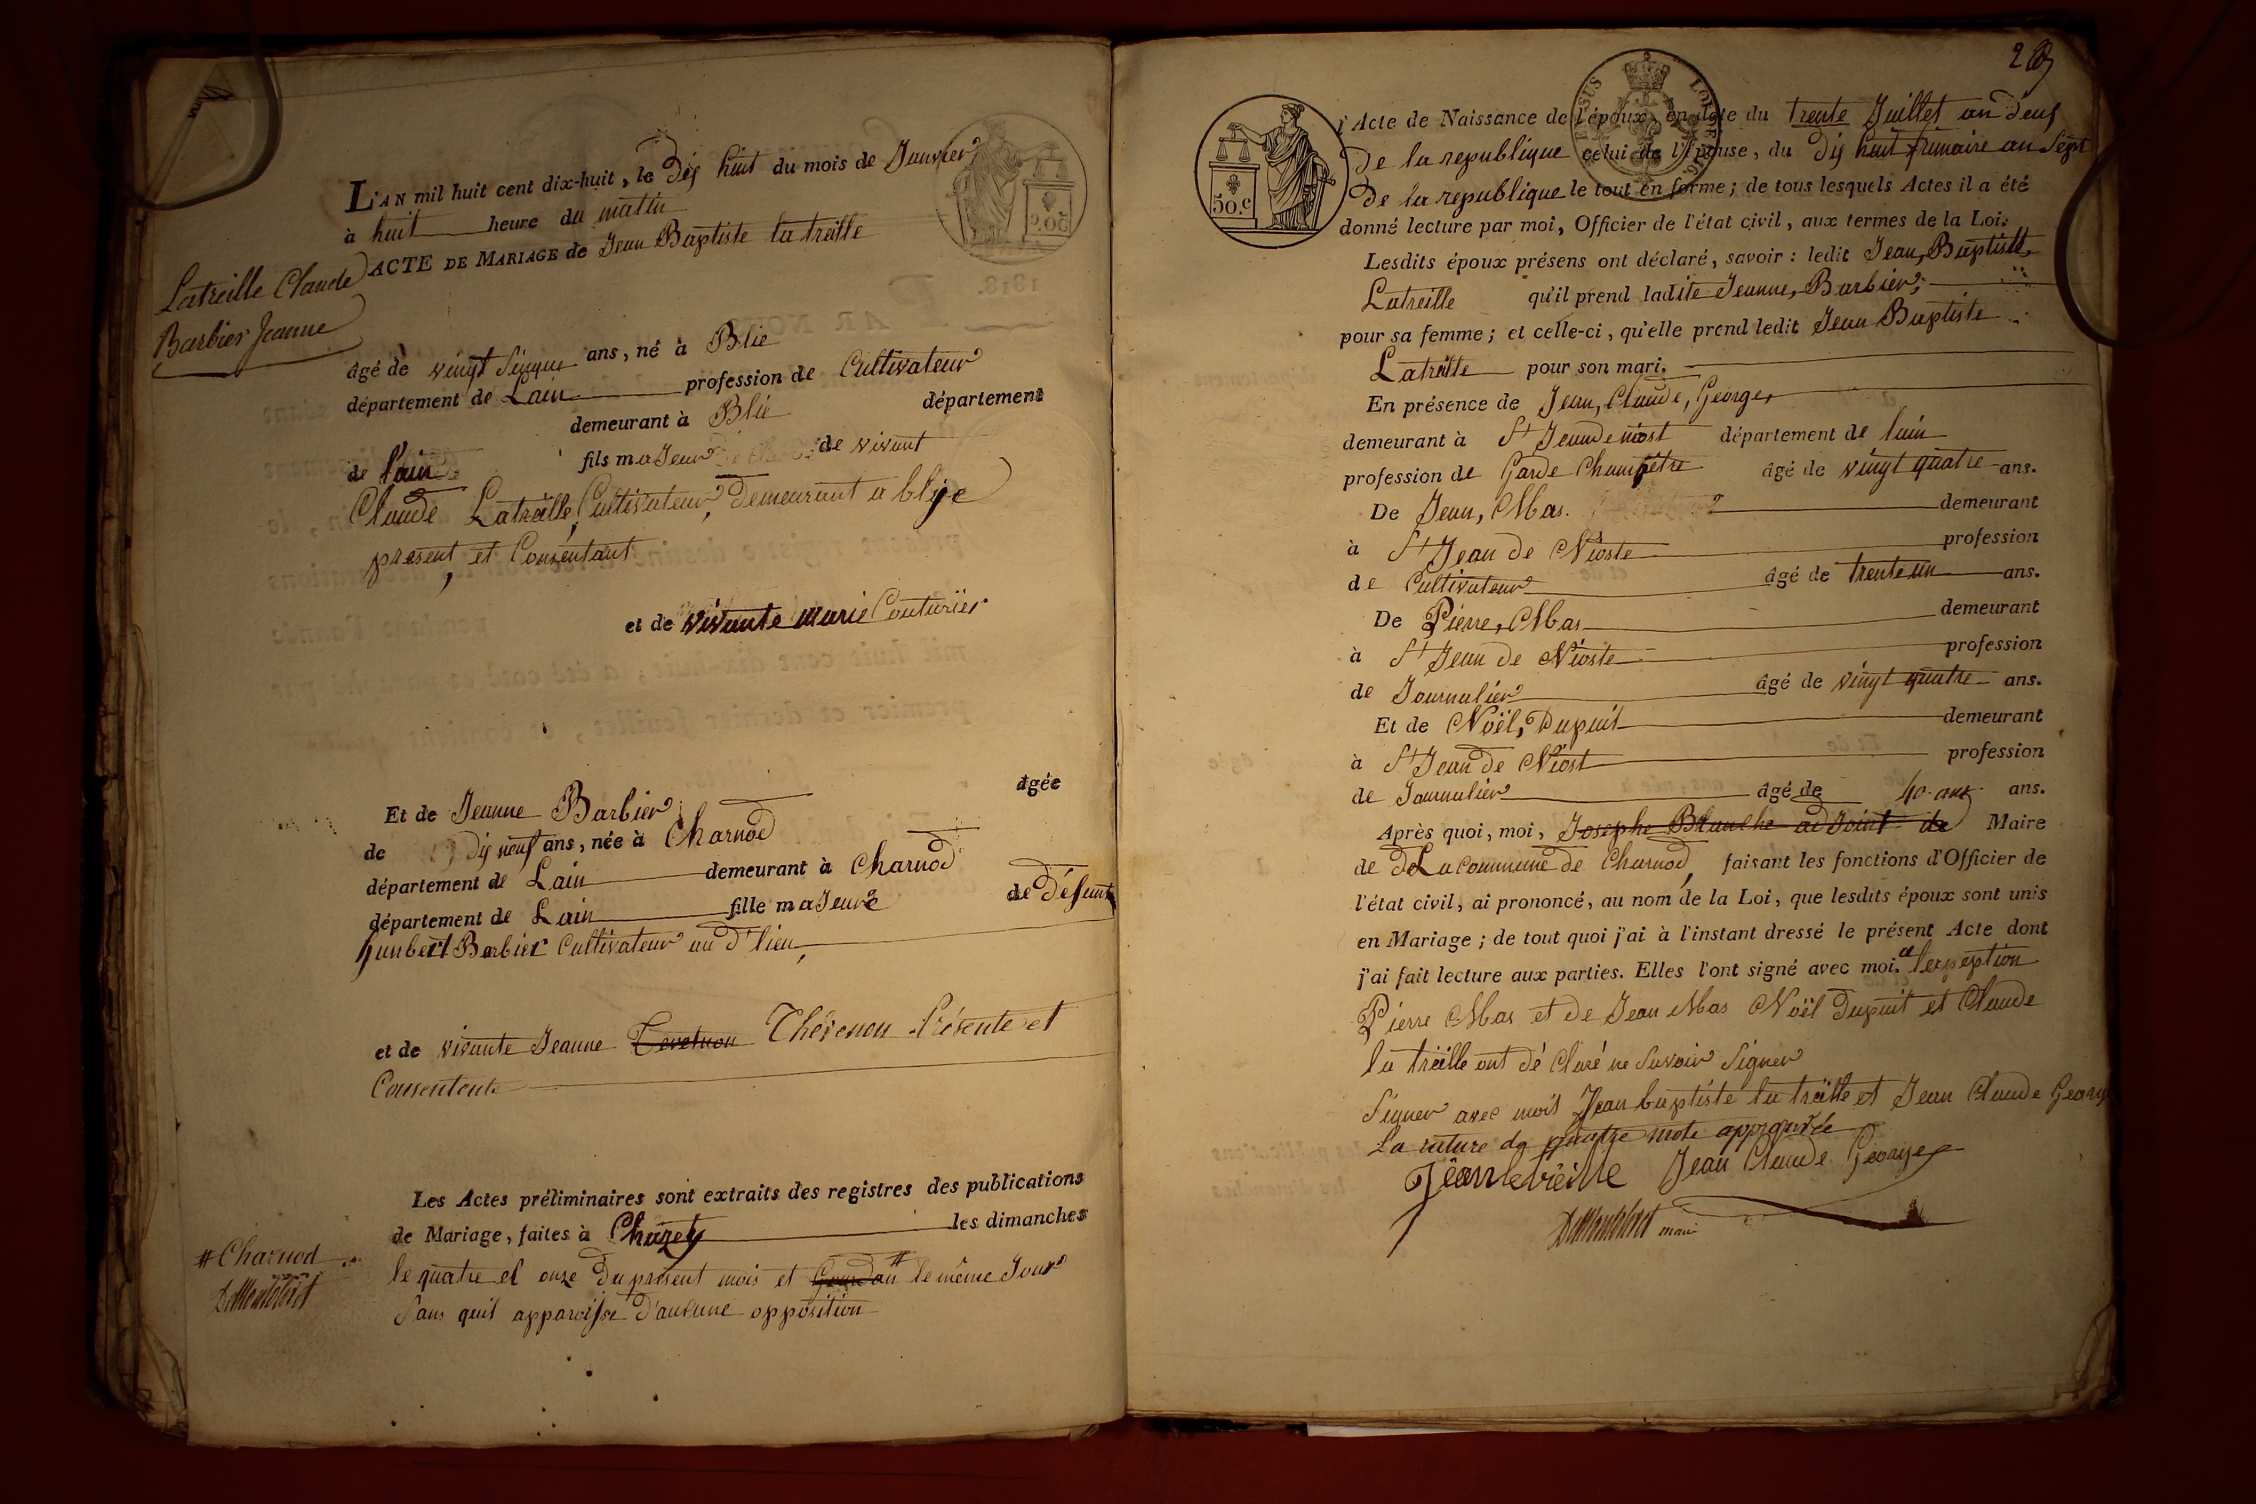 L'AN mil huit cent dix-huit, le dix huit du mois de Janvier
à huit heure du matin
ACTE DE MARIAGE de Jean Baptiste la treille
Latreille Claude
Barbier Jeanne
âgé de vingt Sinque ans, né à Blie
département de Lain profession de Cultivateur
demeurant à Blie département
de l'ain fils maJeur de vivant
Claude Latreille, Cultivateur, demeurant a blye
present, et Consentant
et de vivante marie Couturier
Et de Jeanne Barbier âgée
de dix neuf ans, née à Charnod
département de Lain demeurant à Charnod
département de Lain fille maJeure de défunt
humbert Barbier Cultivateur au d' lieu,
et de vivante Jeanne Thévenon Présente et
Consentente
Les Actes préliminaires sont extraits des registres des publications
de Mariage, faites à Chazey les dimanches
le quatre et onze du présent mois et # le même Jour
Sans quil apparoisse d'aucune opposition
# Charnod
2
50.c
l'Acte de Naissance de l'époux, en date du trente Juillet an deux
de la republique celui de l'épouse, du dix huit frimaire an Sept
de la republique le tout en forme; de tous lesquels Actes il a été
donné lecture par moi, Officier de l'état civil, aux termes de la Loi.
Lesdits époux présens ont déclaré, savoir: ledit Jean, Baptiste,
Latreille qu'il prend ladite Jeanne, Barbier,
pour sa femme; et celle-ci, qu'elle prend ledit Jean Baptiste
Latreille pour son mari.
En présence de Jean, Claude, George,
demeurant à St Jean de niost département de lain
profession de Garde Champêtre âgé de vingt quatre ans.
De Jean, Mas. demeurant
à St Jean de Nioste profession
de Cultivateur âgé de trente un ans.
De Pierre, Mas demeurant
à St Jean de Nioste profession
de Journalier âgé de vingt quatre ans.
Et de Noël, Dupuit demeurant
à St Jean de Niost profession
de Journalier âgé de 40 ans ans.
Après quoi, moi, Josephe Blanche adJoint de Maire
de de La commune de Charnod, faisant les fonctions d'Officier de
l'état civil, ai prononcé, au nom de la Loi, que lesdits époux sont unis
en Mariage; de tout quoi j'ai à l'instant dressé le présent Acte dont
j'ai fait lecture aux parties. Elles l'ont signé avec moi. a lexception
Pierre Mas et de Jean Mas Noël Dupuit et Claude
la treille ont dé Claré ne Savoir Signer
Signer avec mois Jean baptiste la treille et Jean Claude George
La rature de quatre mots approuvée
Jean latreille Jean Claude George
maire